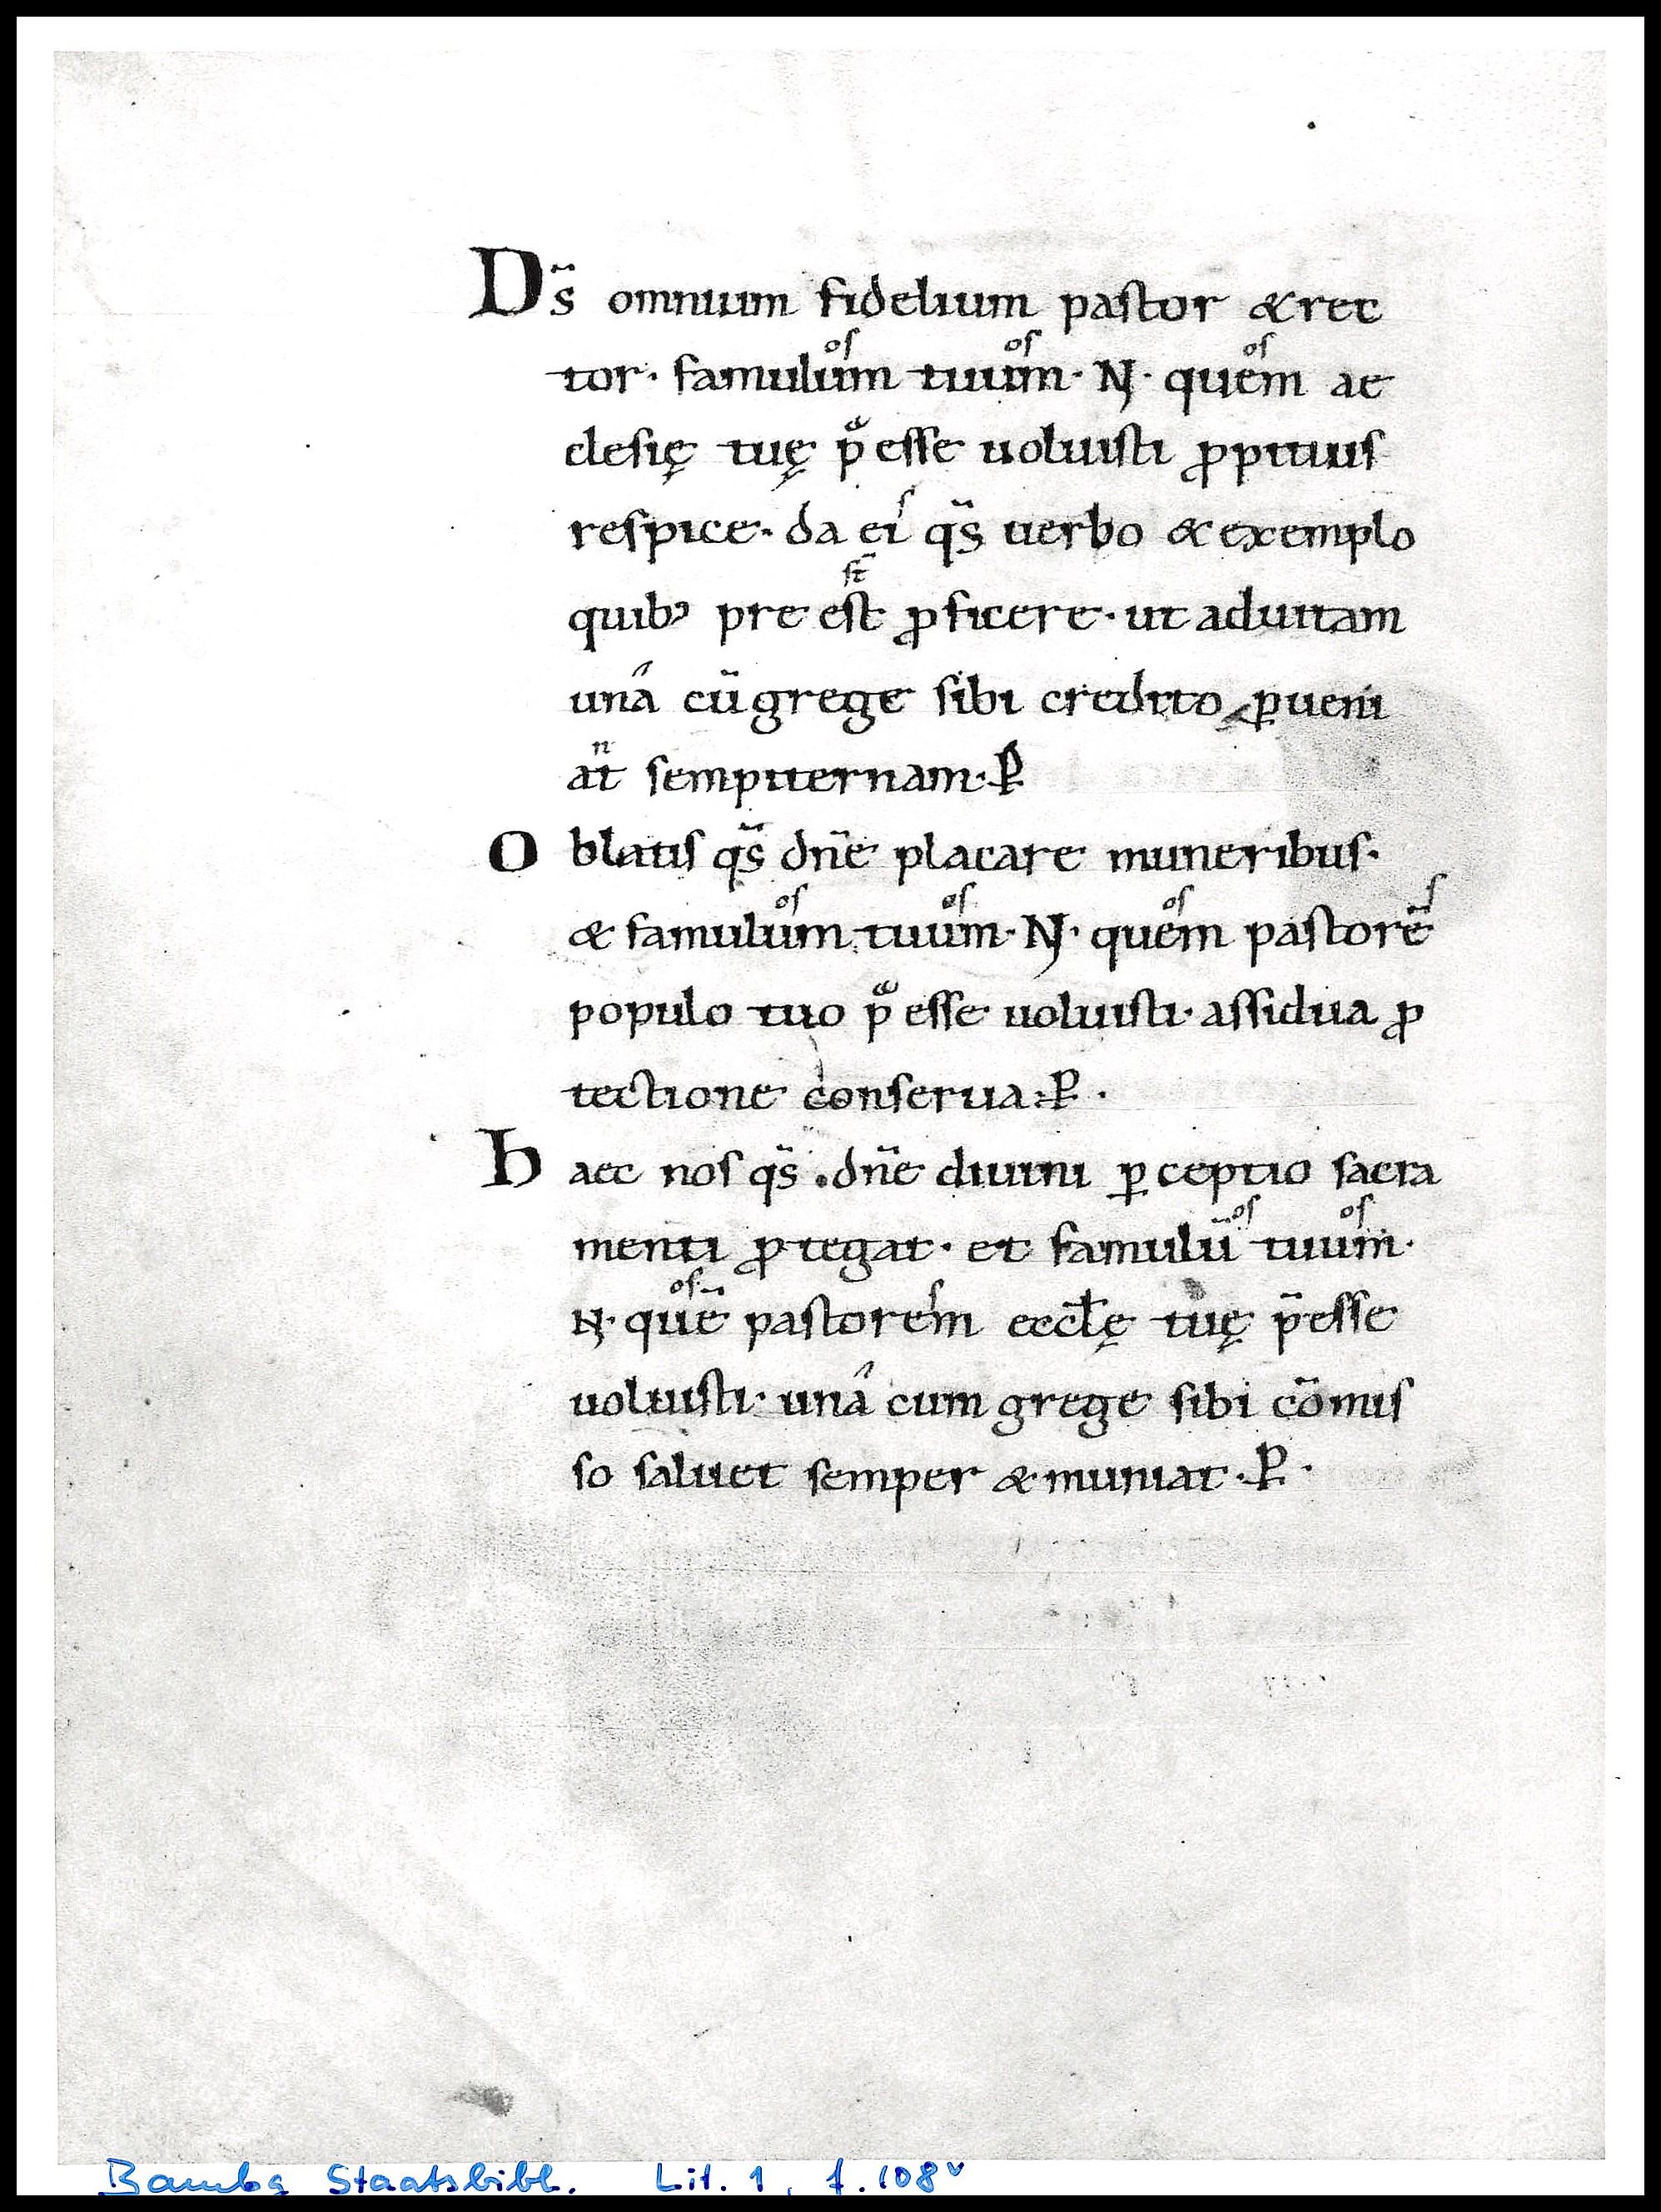 Ds̃ omnium fidelium paſtor &rec
os os os
tor· famulum tuum· N· quem ae
cleſię tuę p̃ eſſe uoluiſti ꝓpitiuſ
s
reſpice· da ei qs̃ uerbo & exemplo
ſt̃
quibꝰ pre eſt ꝓficere· ut aduitam
unâ cũ grege ſibi credito ꝑueni
n
at ſempiternam· P̱
O blatiſ qs̃ dñe placare muneribuſ·
os os os s
& famulum tuum· N· quem paſtorẽ
populo tuo p̃ eſſe uoluiſti· aſſidua ꝓ
tectione conſerua· P̱·
h aec noſ qs̃ · dñe diuini ꝑceptio ſacra
os os
menti ꝓtegat· et famulũ tuum·
os s
N· quẽ paſtorem eccl̄ę tuę p̃eſſe
uoluiſti· unâ cum grege ſibi cõmiſ
ſo ſaluet ſemper & muniat· P̱·
Bambg Staatsbibl. Lit. 1, f. 108ᵛ